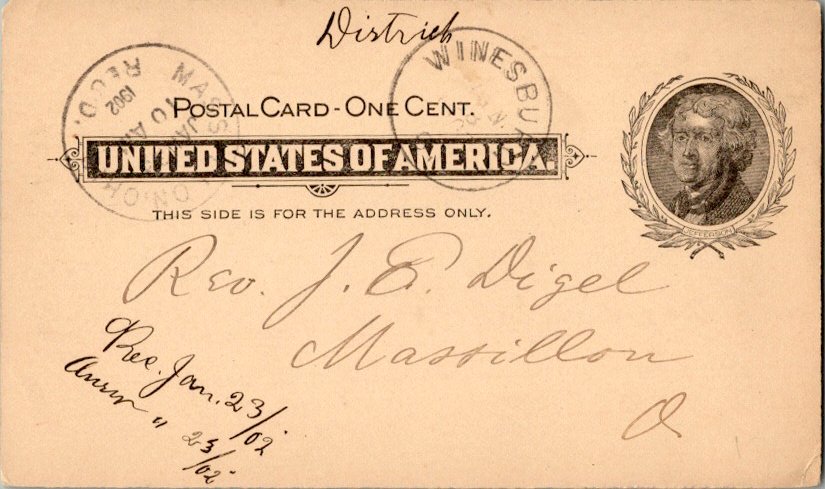 District
WINESBU
MASS ON.OH
JA
10 A
1902
REC'D.
POSTAL CARD - ONE CENT.
UNITED STATES OF AMERICA.
THIS SIDE IS FOR THE ADDRESS ONLY.
JEFFERSON
Rev. J. E. Digel
Massillon
O.
Rec. Jan. 23/02
" 23/02